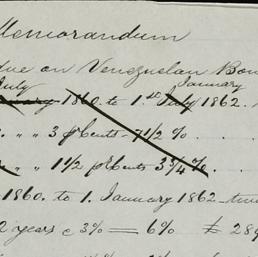 Memorandum
due on Venezuelan Bon
July January
January 1860. to 1.st July 1862.
" " 3 pr Cents - 7 1/2 %
" 1 1/2 pr Cents 3 3/4 %
1860. to 1. January 1862 -
2 years @ 3% = 6% £ 289